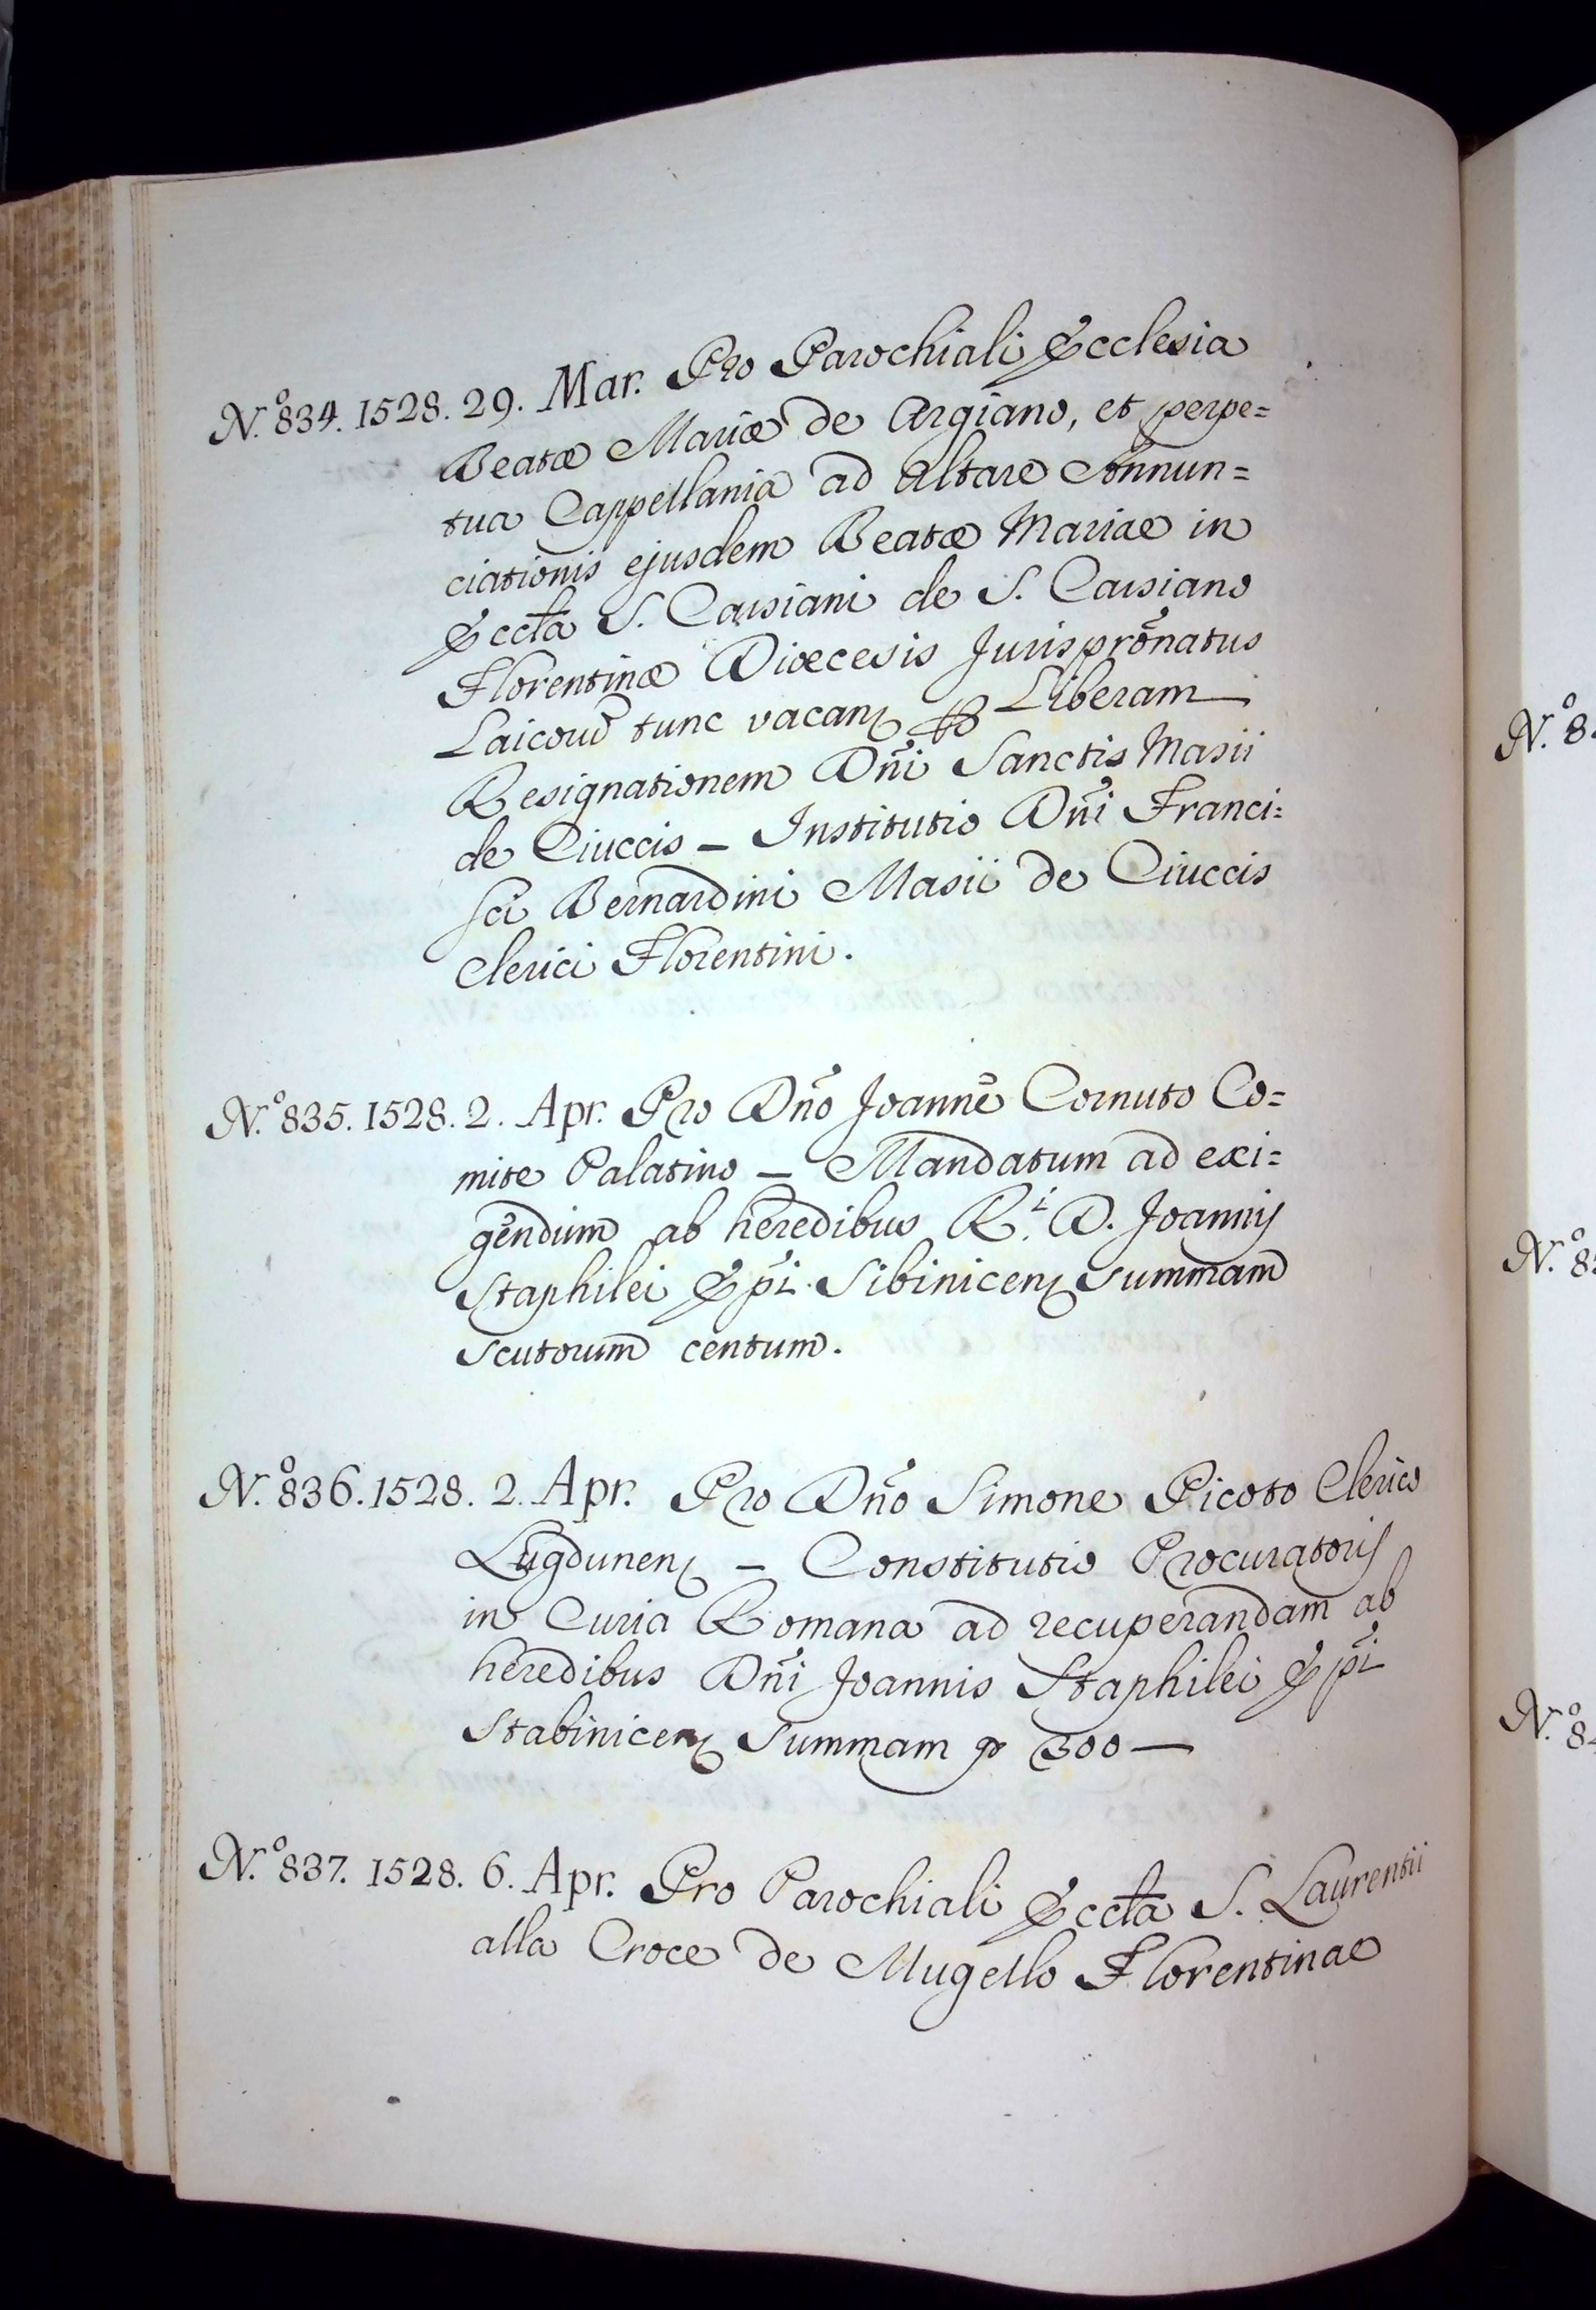 N.º 834. 1528. 29. Mar. Pro Parochiali Ecclesia
Beatæ Mariæ de Argiano, et perpe=
tua Cappellania ad Altare Annun=
ciationis ejusdem Beatæ Mariae in
Eccl̃a S. Cassiani de S. Cassiano
Florentinæ Diœcesis Jurisprõnatus
Laicorũ tunc vacanꝭ Liberam
Resignationem Dñi Sanctis Masii
de Ciuccis — Institutio Dñi Franci=
sci Bernardini Masii de Ciuccis
Clerici Florentini.
N.º 835. 1528. 2. Apr. Pro Dño Joanne Cornuto Co=
mite Palatino — Mandatum ad exi=
gendum ab heredibus R.i D. Joannis
Staphilei Ep̃i Sibinicenꝭ Summam
Scutorum centum.
N.º 836. 1528. 2. Apr. Pro Dño Simone Picoto Clerico
Lugdunenꝭ — Constitutio Procuratoris
in Curia Romana ad recuperandam ab
heredibus Dñi Joannis Staphilei Ep̃i
Stabinicenꝭ Summam 300 —
N.º 837. 1528. 6. Apr. Pro Parochiali Eccl̃a S. Laurentii
alla Croce de Mugello Florentinae
N.º 8
N.º 8
N.º 8